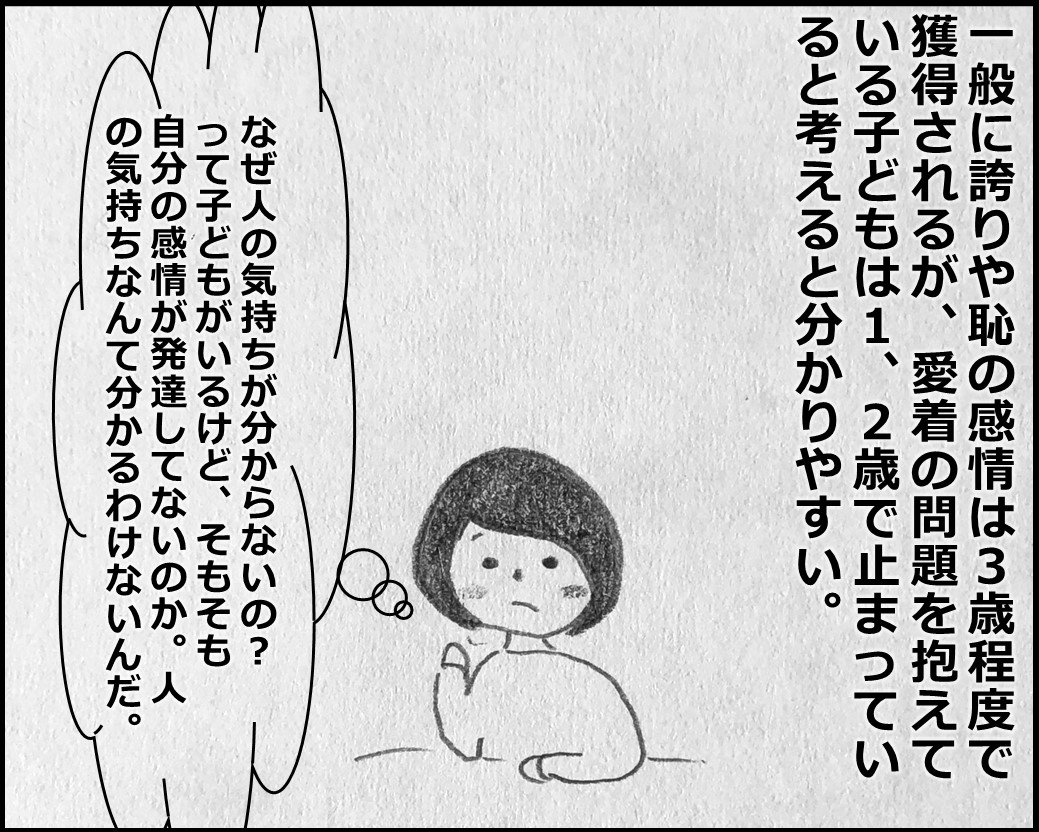 一般に誇りや恥の感情は３歳程度で
獲得されるが、愛着の問題を抱えて
いる子どもは１、２歳で止まってい
ると考えると分かりやすい。
なぜ人の気持ちが分からないの？
って子どもがいるけど、そもそも
自分の感情が発達してないのか。人
の気持ちなんて分かるわけないんだ。